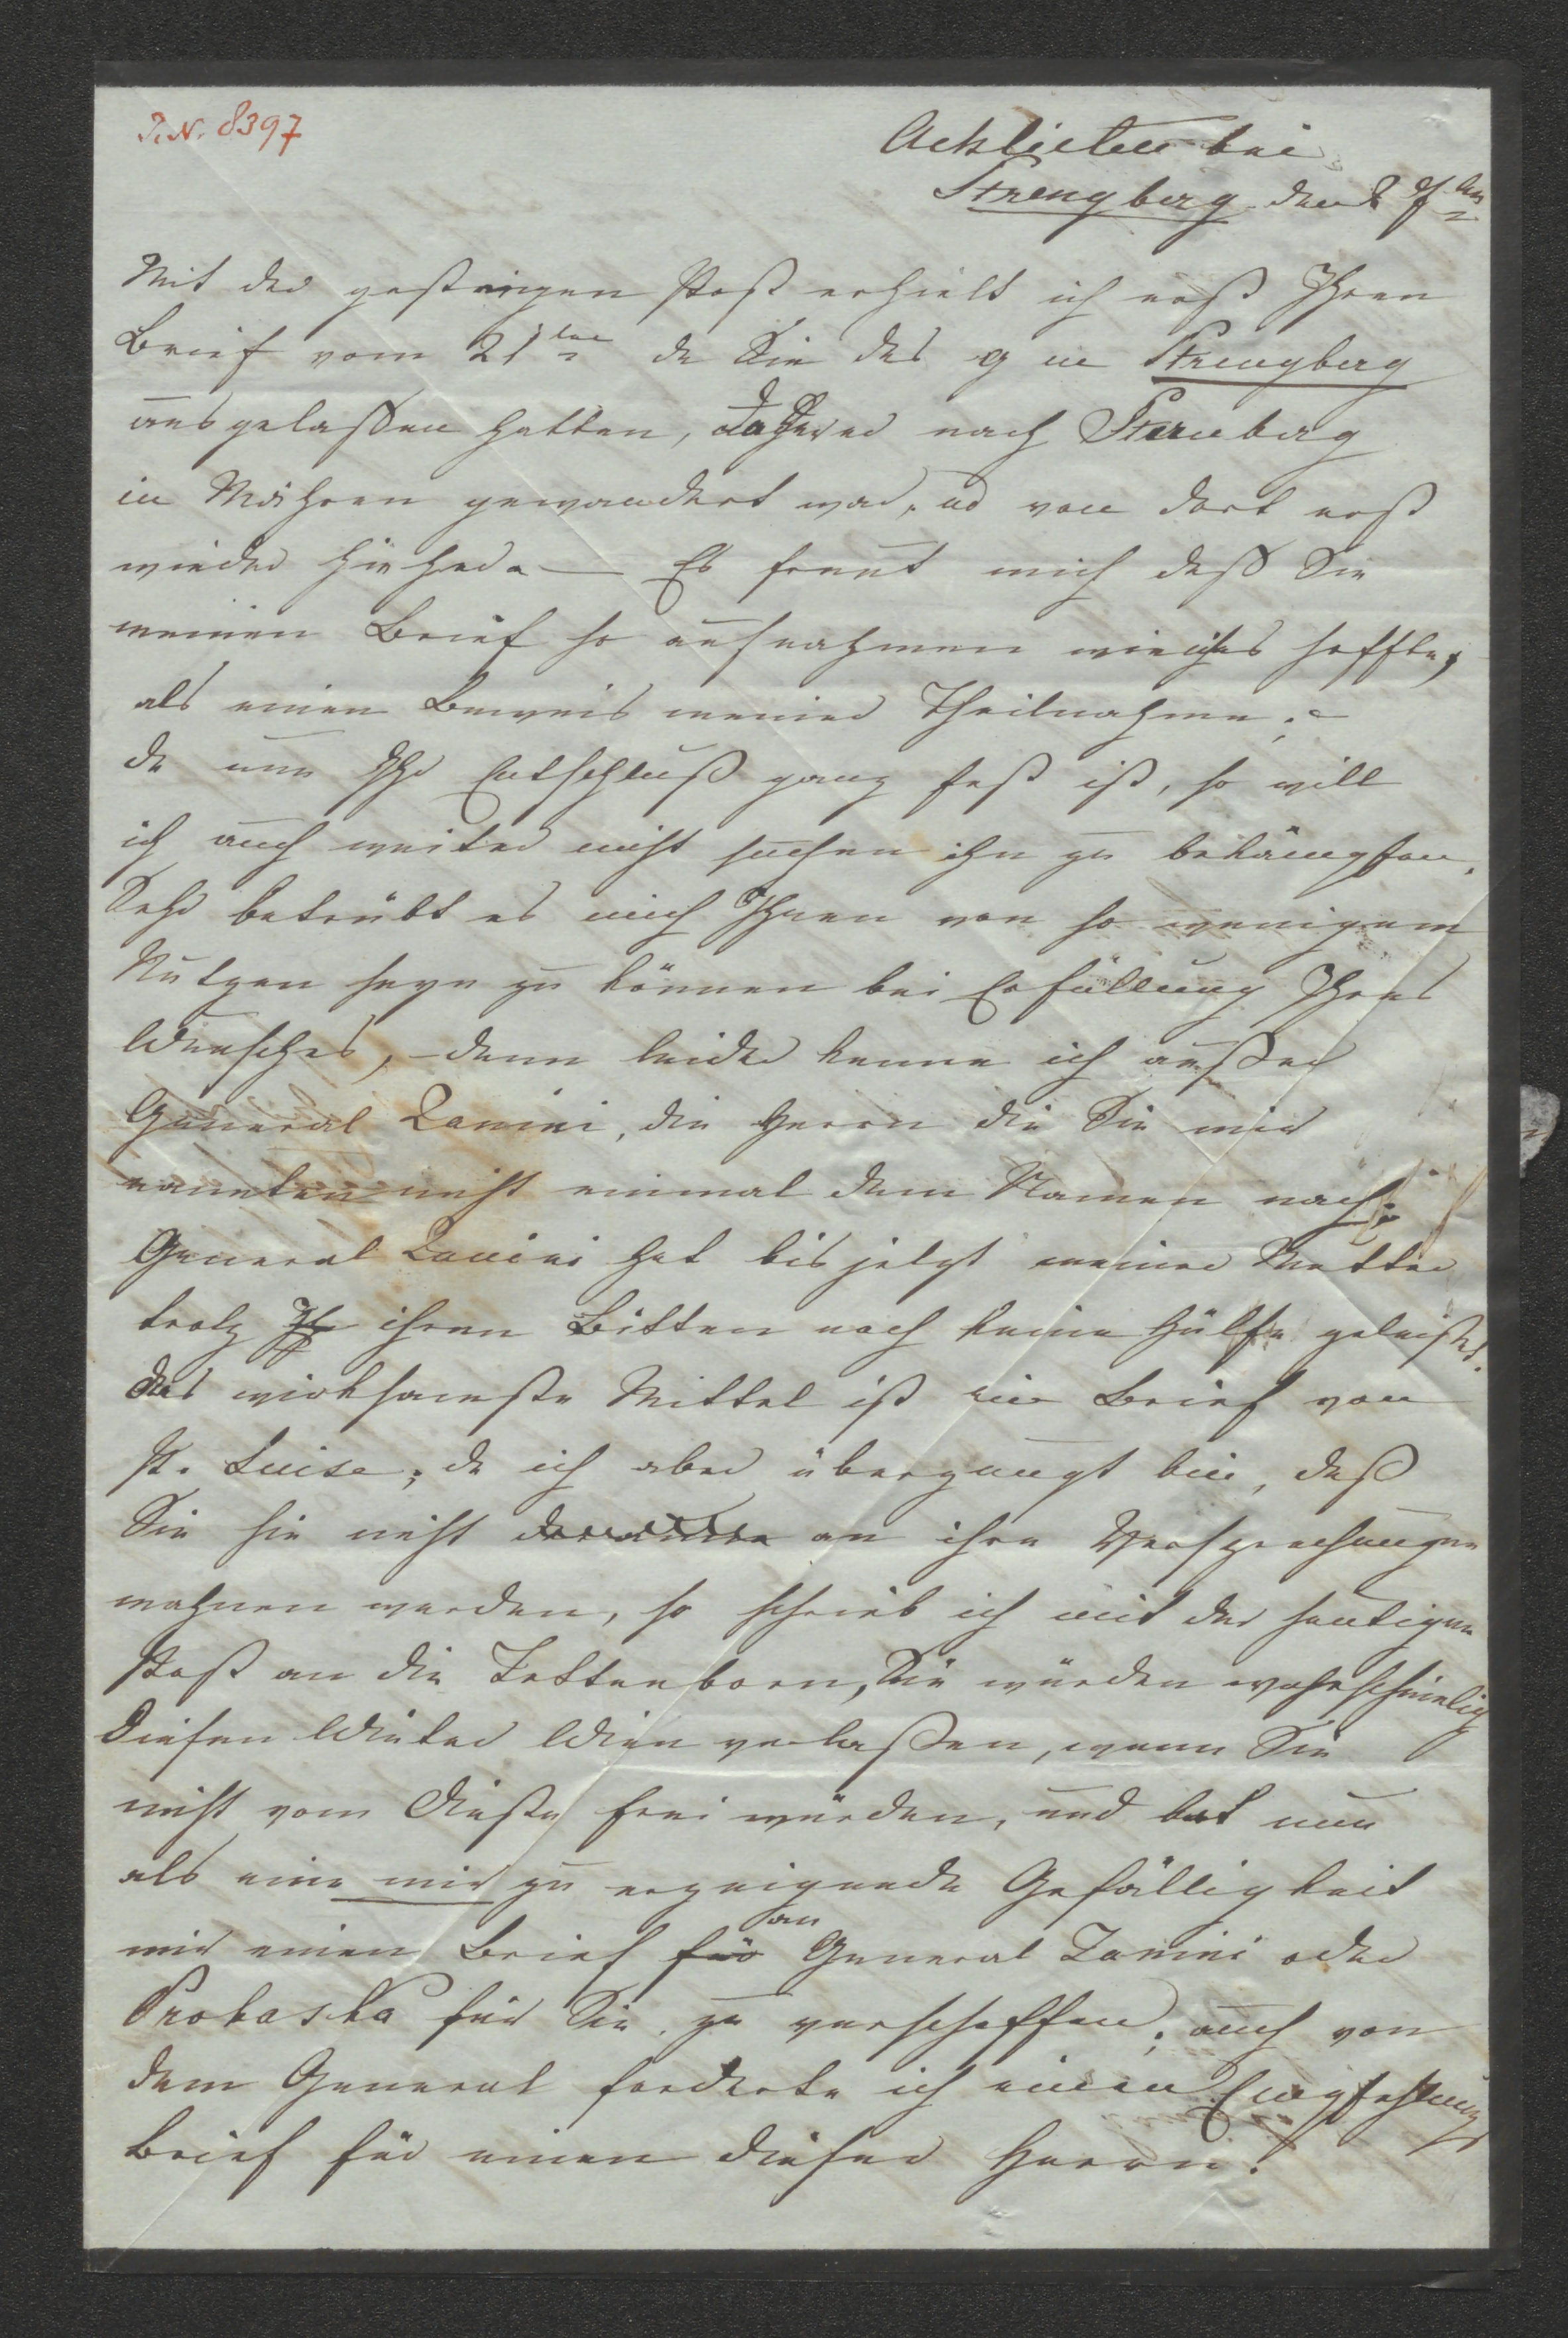 I.N. 8397
Achleiten bei
Strengberg den 2 7ber
Mit der gestrigen Post erhielt ich erst Ihren
Brief vom 21ten da Sie das g in Strengberg
ausgelaßen hatten, daher er nach Sternberg
in Mähren gewandert war, und von dort erst
wieder hieher. — Es freut mich daß Sie
meinen Brief so aufnahmen wie ichs hoffte,
als einen Beweis meiner Theilnahme. –
da nun Ihr Entschluß ganz fest ist, so will
ich auch weiter nicht suchen ihn zu bekämpfen.
Sehr betrübt es mich Ihnen von so wenigem
Nutzen seyn zu können bei Erfüllung Ihres
Wunsches, – denn leider kenne ich außer
General Zanini, die Herrn die Sie mir
nannten nicht einmal dem Namen nach;
General Zanini hat bis jetzt meiner Mutter
trotz ihren Bitten noch keine Hülfe geleistet.
das wirksamste Mittel ist ein Brief von
P. Luise; da ich aber überzeugt bin, daß
Sie sie nicht an ihre Versprechungen
mahnen werden, so schrieb ich mit der heutigen
Post an die Tettenborn, Sie würden wahrscheinlich
diesen Winter Wien verlaßen, wenn Sie
nicht vom Dienste frei würden, und bat nun
als eine mir zu erzeigende Gefälligkeit
mir einen Brief für an General Zanini oder
Prohaska für Sie zu verschaffen; auch von
dem General forderte ich einen Empfehlungs
Brief für einen dieser Herrn.